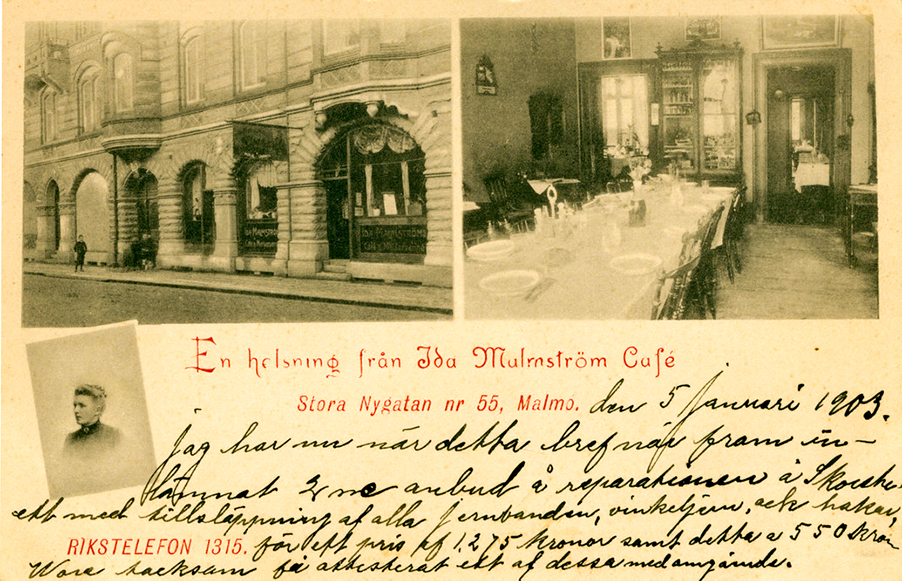 IDA MALMSTRÖMS
En helsning från Ida Malmström Café
Stora Nygatan nr 55, Malmö. den 5 januari 1903.
jag har nu när detta bref når fram in-
lämnat 2ne anbud å reparationen å
ett med tillsläppning af alla jernbanden, vinkeljern, och hakar,
RIKSTELEFON 1315. för ett pris af 1,275 kronor samt detta a 550 kron
Wore tacksam få attesterat ett af dessa medomgående.